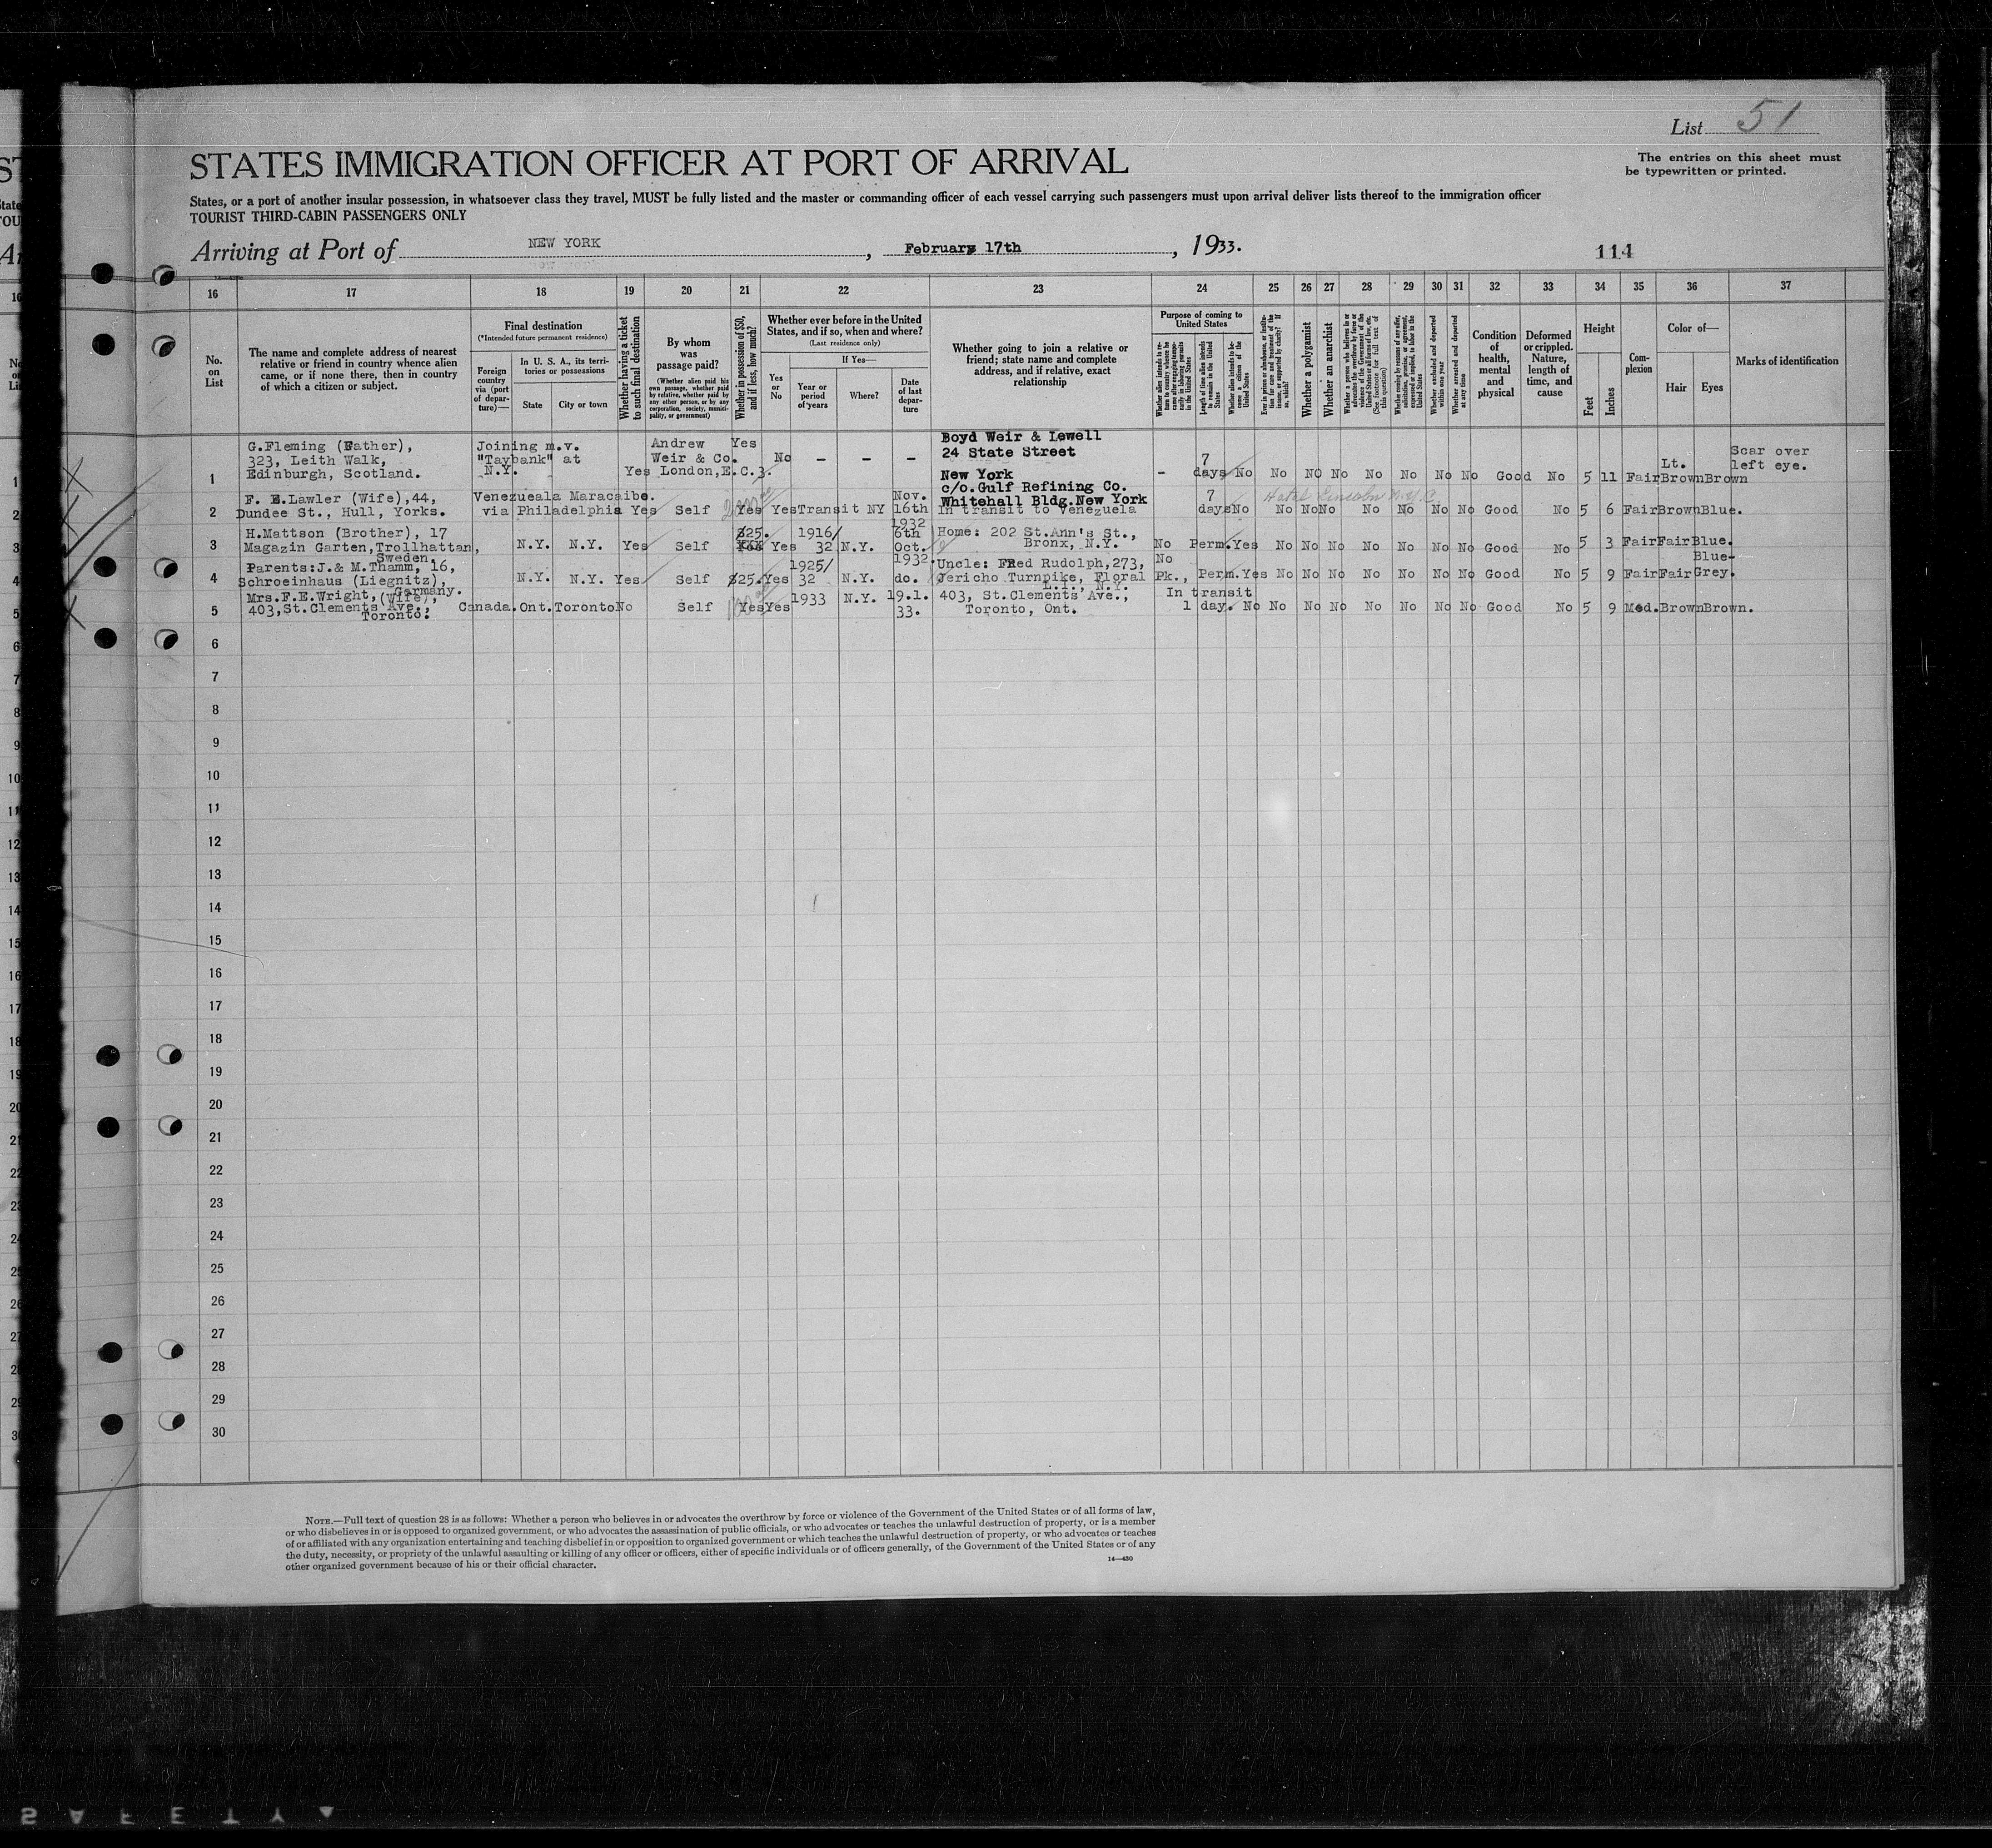 List 51
STATES IMMIGRATION OFFICER AT PORT OF ARRIVAL
The entries on this sheet must
be typewritten or printed.
States, or a port of another insular possession, in whatsoever class they travel, MUST be fully listed and the master or commanding officer of each vessel carrying such passengers must upon arrival deliver lists thereof to the immigration officer
TOURIST THIRD-CABIN PASSENGERS ONLY
Arriving at Port of NEW YORK, February 17th, 1933.
114
16 17 18 19 20 21 22 23 24 25 26 27 28 29 30 31 32 33 34 35 36 37
No. on List
The name and complete address of nearest relative or friend in country whence alien came, or if none there, then in country of which a citizen or subject.
Final destination
(*Intended future permanent residence)
Foreign country via (port of departure)—
In U. S. A., its territories or possessions
State
City or town
Whether having a ticket to such final destination
By whom was passage paid?
(Whether alien paid his own passage, whether paid by relative, whether paid by any other person, or by any corporation, society, municipality, or government)
Whether in possession of $50, and if less, how much?
Whether ever before in the United States, and if so, when and where?
(Last residence only)
Yes or No
If Yes—
Year or period of years
Where?
Date of last departure
Whether going to join a relative or friend; state name and complete address, and if relative, exact relationship
Purpose of coming to United States
Length of time alien intends to remain in the United States
Whether alien intends to become a citizen of the United States
Whether a polygamist
Whether an anarchist
(See footnote for full text of this question)
Whether excluded and deported within one year
Whether arrested and deported at any time
Condition of health, mental and physical
Deformed or crippled. Nature, length of time, and cause
Height
Feet
Inches
Complexion
Color of—
Hair
Eyes
Marks of identification
1 G.Fleming (Father), 323, Leith Walk, Edinburgh, Scotland. Joining m.v. "Taybank" at N.Y. Yes Andrew Weir & Co. London,E.C.3. Yes No - - - Boyd Weir & Lewell 24 State Street New York - 7 days No No No No No No No No Good No 5 11 Fair Lt. Brown Brown Scar over left eye.
2 F. E.Lawler (Wife),44, Dundee St., Hull, Yorks. Venezueala Maracaibo. via Philadelphia Yes Self Yes Yes Transit NY Nov. 16th 1932 c/o.Gulf Refining Co. Whitehall Bldg.New York In transit to Venezuela 7 days No Hotel Lincoln N.Y.C. No No No No No No No Good No 5 6 Fair Brown Blue.
3 H.Mattson (Brother), 17 Magazin Garten,Trollhattan, Sweden. N.Y. N.Y. Yes Self $25. Yes 1916/32 N.Y. 6th Oct. 1932. Home: 202 St.Ann's St., Bronx, N.Y. No Perm. Yes No No No No No No No Good No 5 3 Fair Fair Blue.
4 Parents:J.& M.Thamm, 16, Schroeinhaus (Liegnitz), Germany. N.Y. N.Y. Yes Self $25. Yes 1925/32 N.Y. do. Uncle: FRed Rudolph,273, Jericho Turnpike, Floral Pk., L.I. N.Y. No Perm. Yes No No No No No No No Good No 5 9 Fair Fair Blue-Grey.
5 Mrs.F.E.Wright, (Wife), 403,St.Clements Ave., Toronto. Canada. Ont. Toronto No Self Yes Yes 1933 N.Y. 19.1.33. 403, St.Clements Ave., Toronto, Ont. In transit 1 day. No No No No No No No No Good No 5 9 Med. Brown Brown.
6
7
8
9
10
11
12
13
14
15
16
17
18
19
20
21
22
23
24
25
26
27
28
29
30
NOTE.—Full text of question 28 is as follows: Whether a person who believes in or advocates the overthrow by force or violence of the Government of the United States or of all forms of law,
or who disbelieves in or is opposed to organized government, or who advocates the assassination of public officials, or who advocates or teaches the unlawful destruction of property, or is a member
of or affiliated with any organization entertaining and teaching disbelief in or opposition to organized government or which teaches the unlawful destruction of property, or who advocates or teaches
the duty, necessity, or propriety of the unlawful assaulting or killing of any officer or officers, either of specific individuals or of officers generally, of the Government of the United States or of any
other organized government because of his or their official character.
14—430
SAFETY